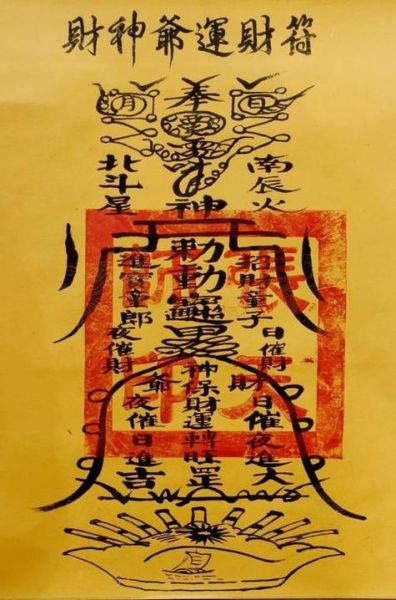 財神爺運財符
月
奉
日
南辰火
神
北斗星
招財童子
日催財
進寶章郎
夜催財
財日催夜進大
神保財運轉旺罡
爺夜催日進吉
張天師印